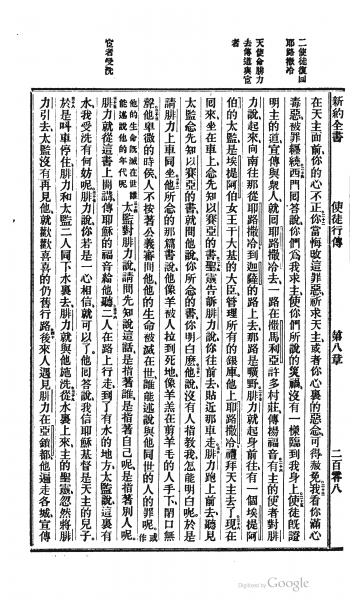 新約全書 使徒行傳 第八章 二百零八
二使徒復回
耶路撒冷
天使命腓力
去傳道與宦
者
宦者受洗
在天主面前你的心不正你當悔改這罪惡祈求天主或者你心裏的惡念可得赦免我看你滿心
毒惡被罪纏繞西門回答說你們為我求主使你們所說的災禍沒有一樣臨到我身上使徒旣證
明主的道宣傳與衆人就回耶路撒冷去一路在撒馬利亞許多村莊傳揚福音有主的使者對腓
力說起來向南往那從耶路撒冷到迦薩的路上去那路是曠野腓力就起身前往有一個埃提阿
伯的太監是埃提阿伯女王干大基的大臣管理所有的銀庫他上耶路撒冷禮拜天主去了現在
回來在車上念先知以賽亞的書聖靈告訴腓力說你往前去貼近那車走腓力跑上前去聽見
太監念先知以賽亞的書就問他說你所念的書你明白麼他說沒有人指教我怎能明白呢於是
請腓力上車同坐他所念的那篇書說他像羊被人拉到死地像羊羔在剪羊毛的人手下閉口無
聲他卑微的時侯人不按著公義審問他他的生命被滅在世誰能述說與他同世的人的罪呢或作
他的生命旣滅在世誰
能述說他的年代呢
太監對腓力說請問先知說這話是指著誰是指著自己呢是指著別人呢
腓力就從這書上開講傳耶穌的福音給他聽二人在路上行走到了有水的地方太監說這裏有
水我受洗有何妨呢腓力說你若是一心相信就可以了他回答說我信耶穌基督是天主的兒子
於是叫車停住腓力和太監二人同下水裏去腓力就與他施洗從水裏上來主的聖靈忽然將腓
力引去太監沒有再見他就歡歡喜喜的仍舊行路後來人遇見腓力在亞鎖都他遍走各城宣傳
Digitized by Google